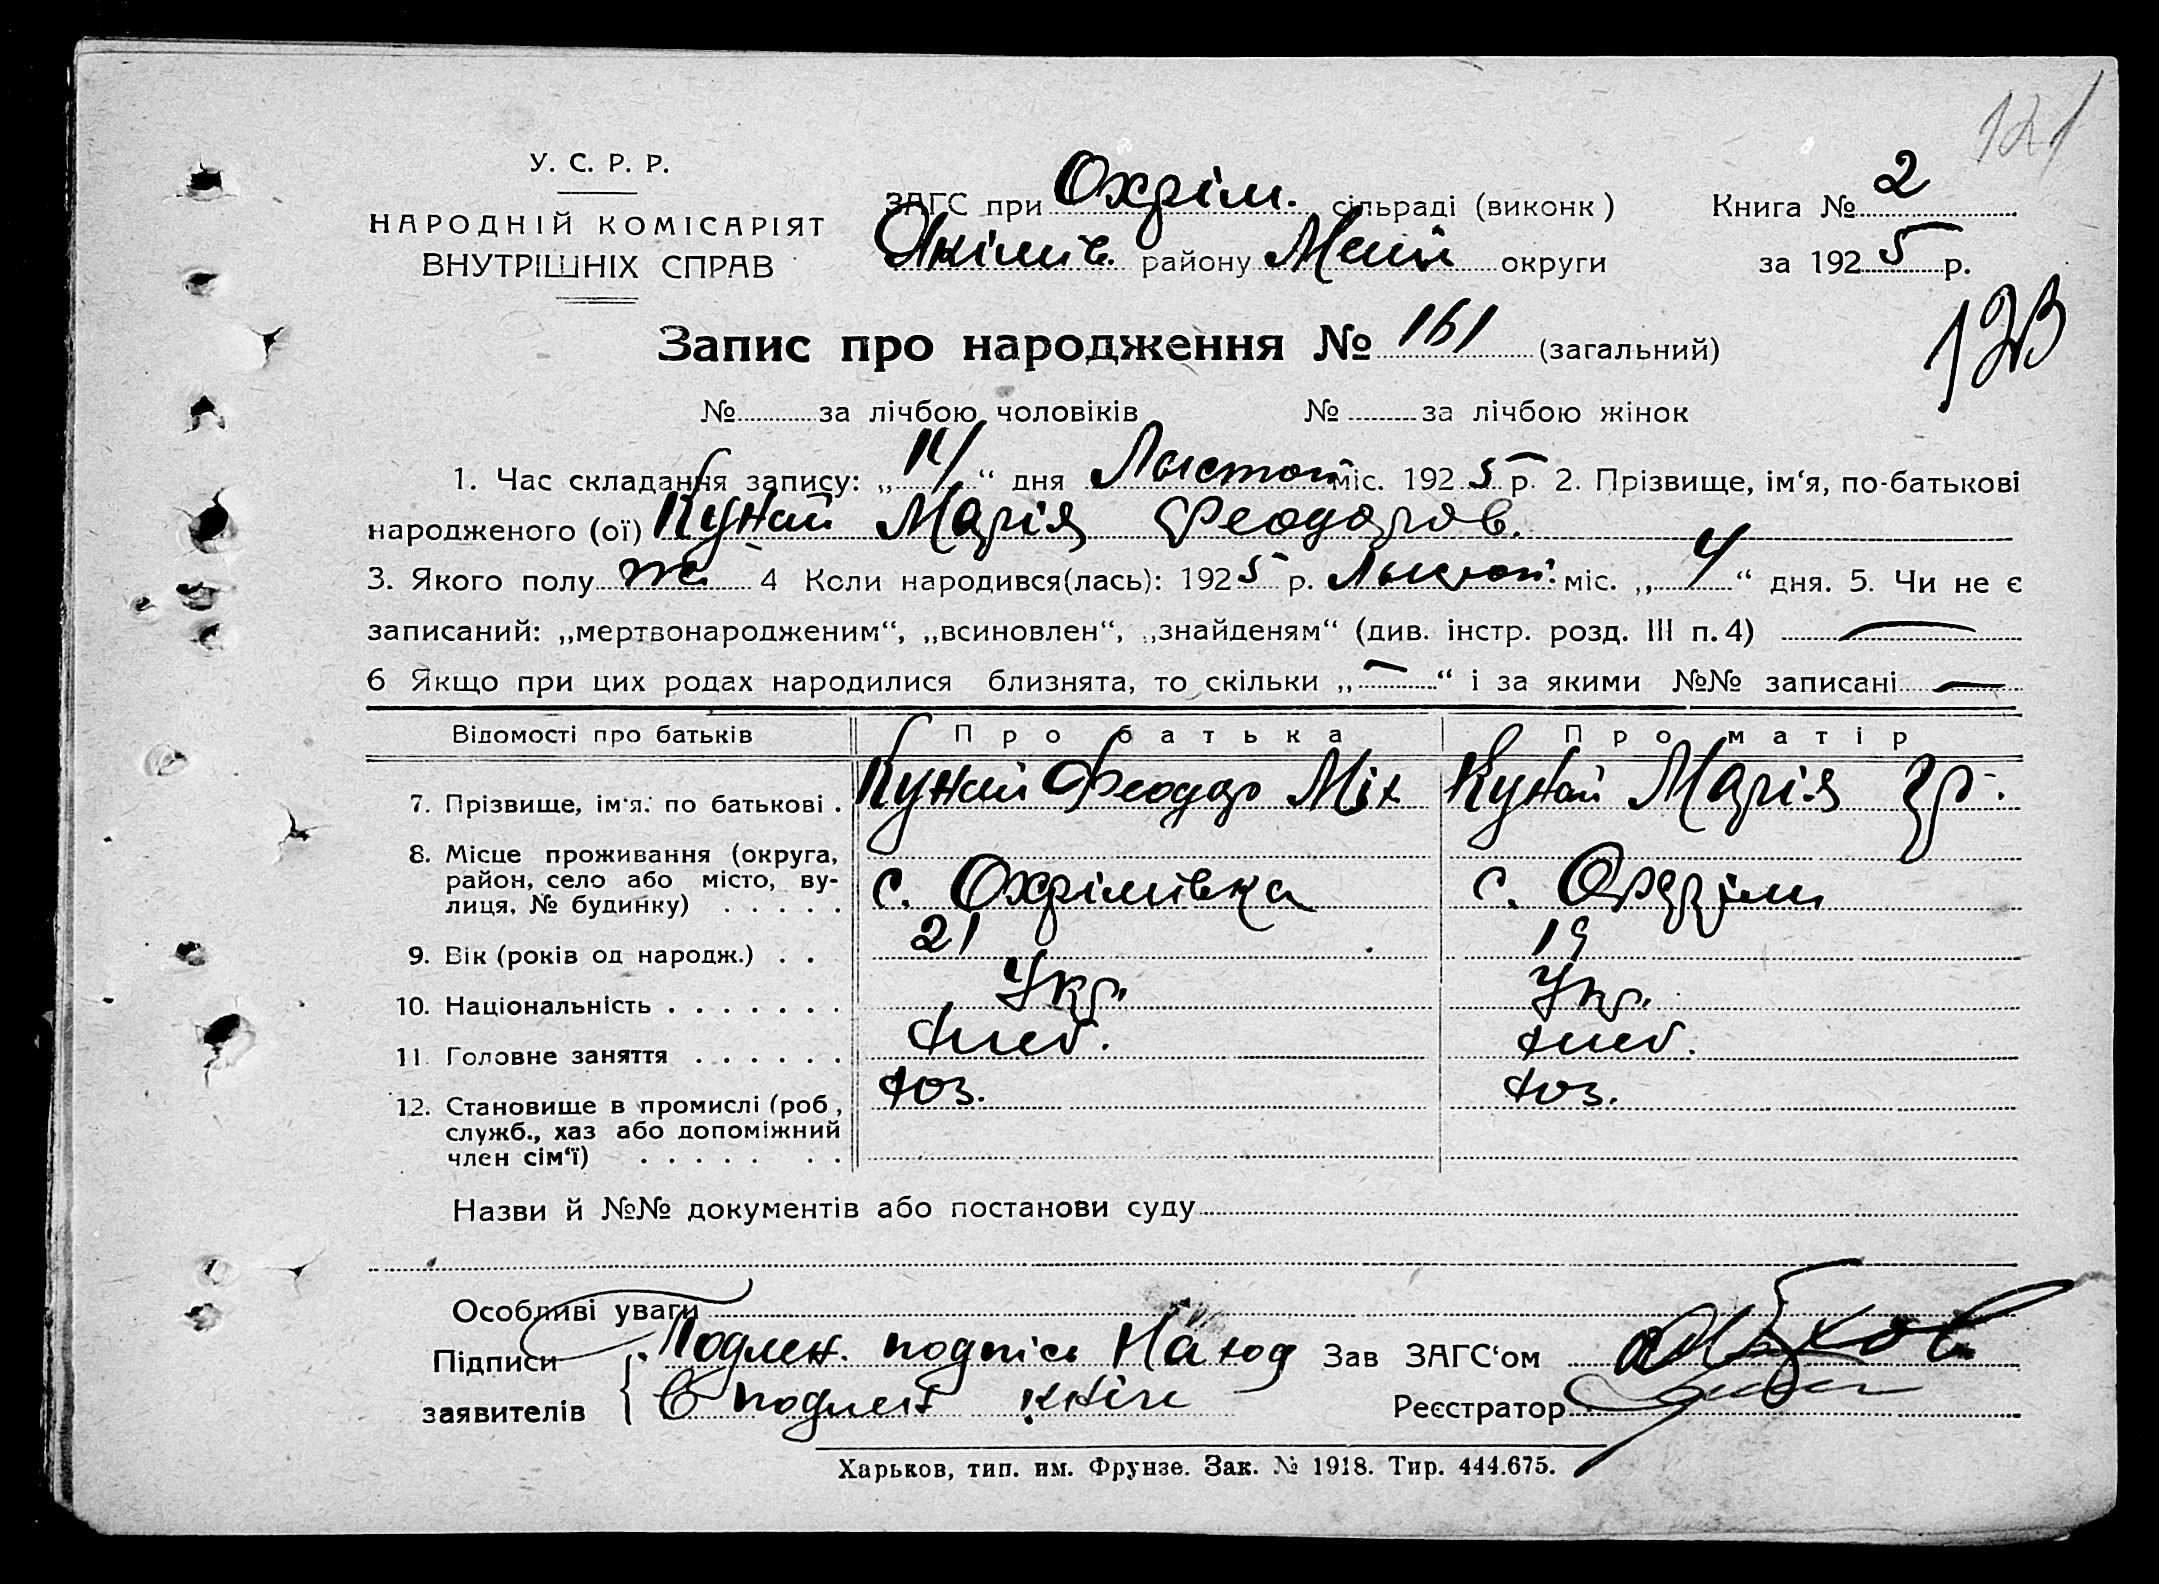 121
У. С. Р. Р.
НАРОДНІЙ КОМІСАРІЯТ
ВНУТРІШНІХ СПРАВ
ЗАГС при Охрім. сільраді (виконк)
Якімів. району Меліт округи
Книга № 2
за 1925 р.
Запис про народження № 161 (загальний)
123
№ за лічбою чоловіків № за лічбою жінок
1. Час складання запису: „14“ дня Листоп міс. 1925 р. 2. Прізвище, ім‘я, по-батькові
народженого (ої) Кунай Марія Феодоров.
3. Якого полу ж. 4 Коли народився(лась): 1925 р. Листоп. міс. „4“ дня. 5. Чи не є
записаний: „мертвонародженим“, „всиновлен“, „знайденям“ (див. інстр. розд. III п. 4) —
6 Якщо при цих родах народилися близнята, то скільки „—“ і за якими №№ записані —
Відомості про батьків Про батька Про матір
7. Прізвище, ім‘я, по батькові . Кунай Феодор Міх Кунай Марія Гр.
8. Місце проживання (округа,
район, село або місто, ву-
лиця, № будинку) . . . . . с. Охрімівка с. Охрім
9. Вік (років од народж.) . . 21 19
10. Національність . . . . . . . Укр. Укр.
11. Головне заняття . . . . . . хліб. хліб.
12. Становище в промислі (роб.,
служб., хаз або допоміжний
член сім‘ї) . . . . . . . хоз. хоз.
Назви й №№ документів або постанови суду
Особливі уваги
Підписи Подлен. подпісь Наход Зав ЗАГС‘ом
заявителів В подлен кніги Реєстратор
Харьков, тип. им. Фрунзе. Зак. № 1918. Тир. 444.675.